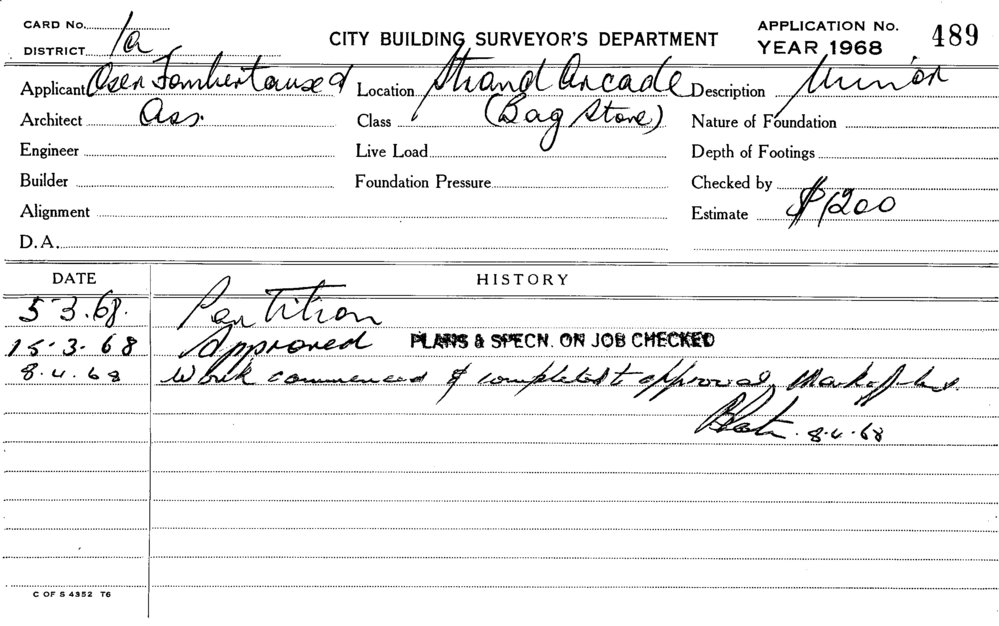 CARD No.
DISTRICT 1a
CITY BUILDING SURVEYOR'S DEPARTMENT
APPLICATION No. 489
YEAR 1968
Applicant
Location Strand Arcade
Description Minor
Architect Ass.
Class (Bag Store)
Nature of Foundation
Engineer
Live Load
Depth of Footings
Builder
Foundation Pressure
Checked by
Alignment
Estimate $1200
D.A.
DATE HISTORY
5-3.68. Partition
15-3-68 Approved PLANS & SPECN. ON JOB CHECKED
8.4.68 Work commenced & completed to approval
8.4.68
C OF S 4352 T6